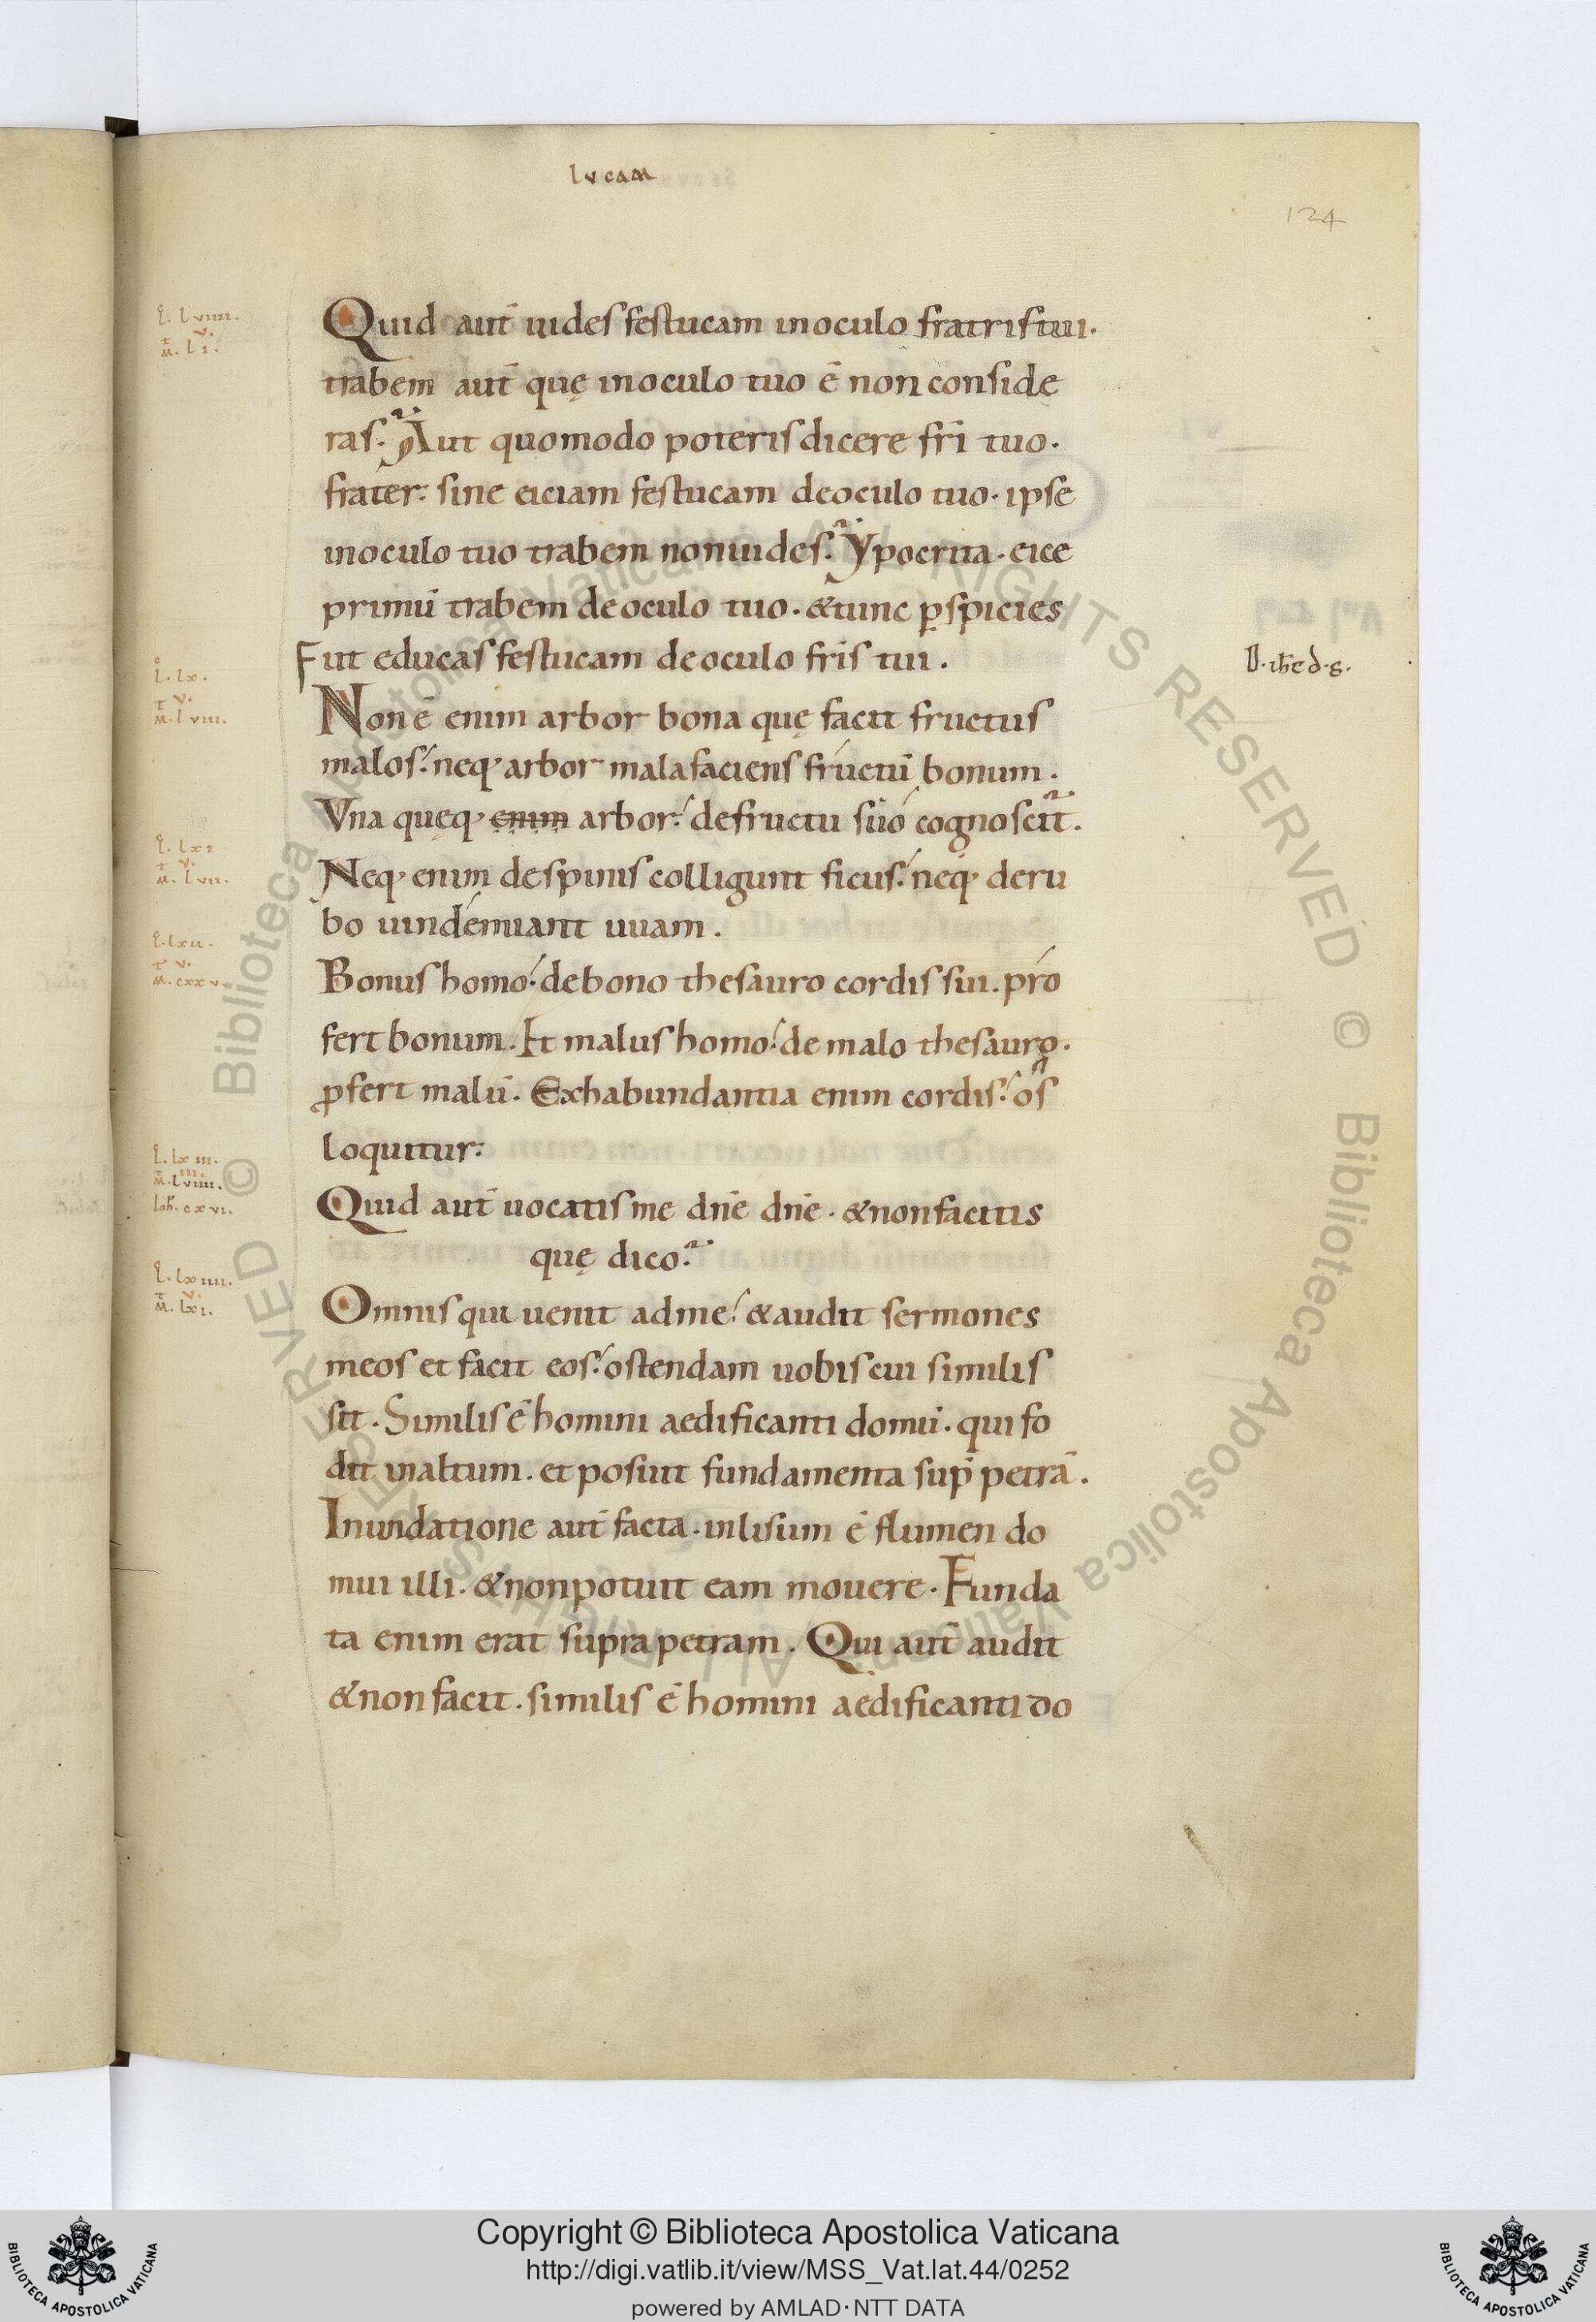 lucam
124
L. lviiii.
v.
M. li.
Quid aut̄ uides festucam inoculo fratris tui.
trabem aut̄ quę inoculo tuo ē non conside
ras. Aut quomodo poteris dicere fr̄i tuo.
frater. sine eiciam festucam deoculo tuo. ipse
inoculo tuo trabem nonuides. Ypocrita. eice
primū trabem deoculo tuo. &tunc ꝑspicies
F ut educas festucam deoculo fr̄is tui.
L. lx.
v.
M. lviii.
Non ē enim arbor bona quę facit fructus
malos. neq; arbor mala faciens fructū bonum.
Vna quęq; enim arbor. defructu suo cognoscit̄.
L. lxi
v.
M. lvii.
Neq; enim despinis colligunt ficus. neq; deru
bo uindemiant uuam.
L. lxii.
v.
M. cxxv.
Bonus homo. debono thesauro cordis sui. pro
fert bonum. Et malus homo. de malo thesauro.
ꝓfert malū. Exhabundantia enim cordis. os
loquitur.
L. lxiii.
iii.
M. lviiii.
Ioh. cxvi.
Quid aut̄ uocatis me dn̄e dn̄e. &nonfacitis
quę dico.
L. lxiiii.
v.
M. lxi.
Omnis qui uenit adme. &audit sermones
meos et facit eos. ostendam uobis cui similis
sit. Similis ē homini aedificanti domū. qui fo
dit inaltum. et posuit fundamenta sup̄ petrā.
Inundatione aut̄ facta. inlisum ē flumen do
mui illi. &nonpotuit eam mouere. Funda
ta enim erat supra petram. Qui aut̄ audit
&non facit. similis ē homini aedificanti do
© Biblioteca Apostolica Vaticana ALL RIGHTS RESERVED © Biblioteca Apostolica Vaticana ALL RIGHTS RESERVED
Copyright © Biblioteca Apostolica Vaticana
http://digi.vatlib.it/view/MSS_Vat.lat.44/0252
powered by AMLAD·NTT DATA
BIBLIOTECA APOSTOLICA VATICANA
BIBLIOTECA APOSTOLICA VATICANA